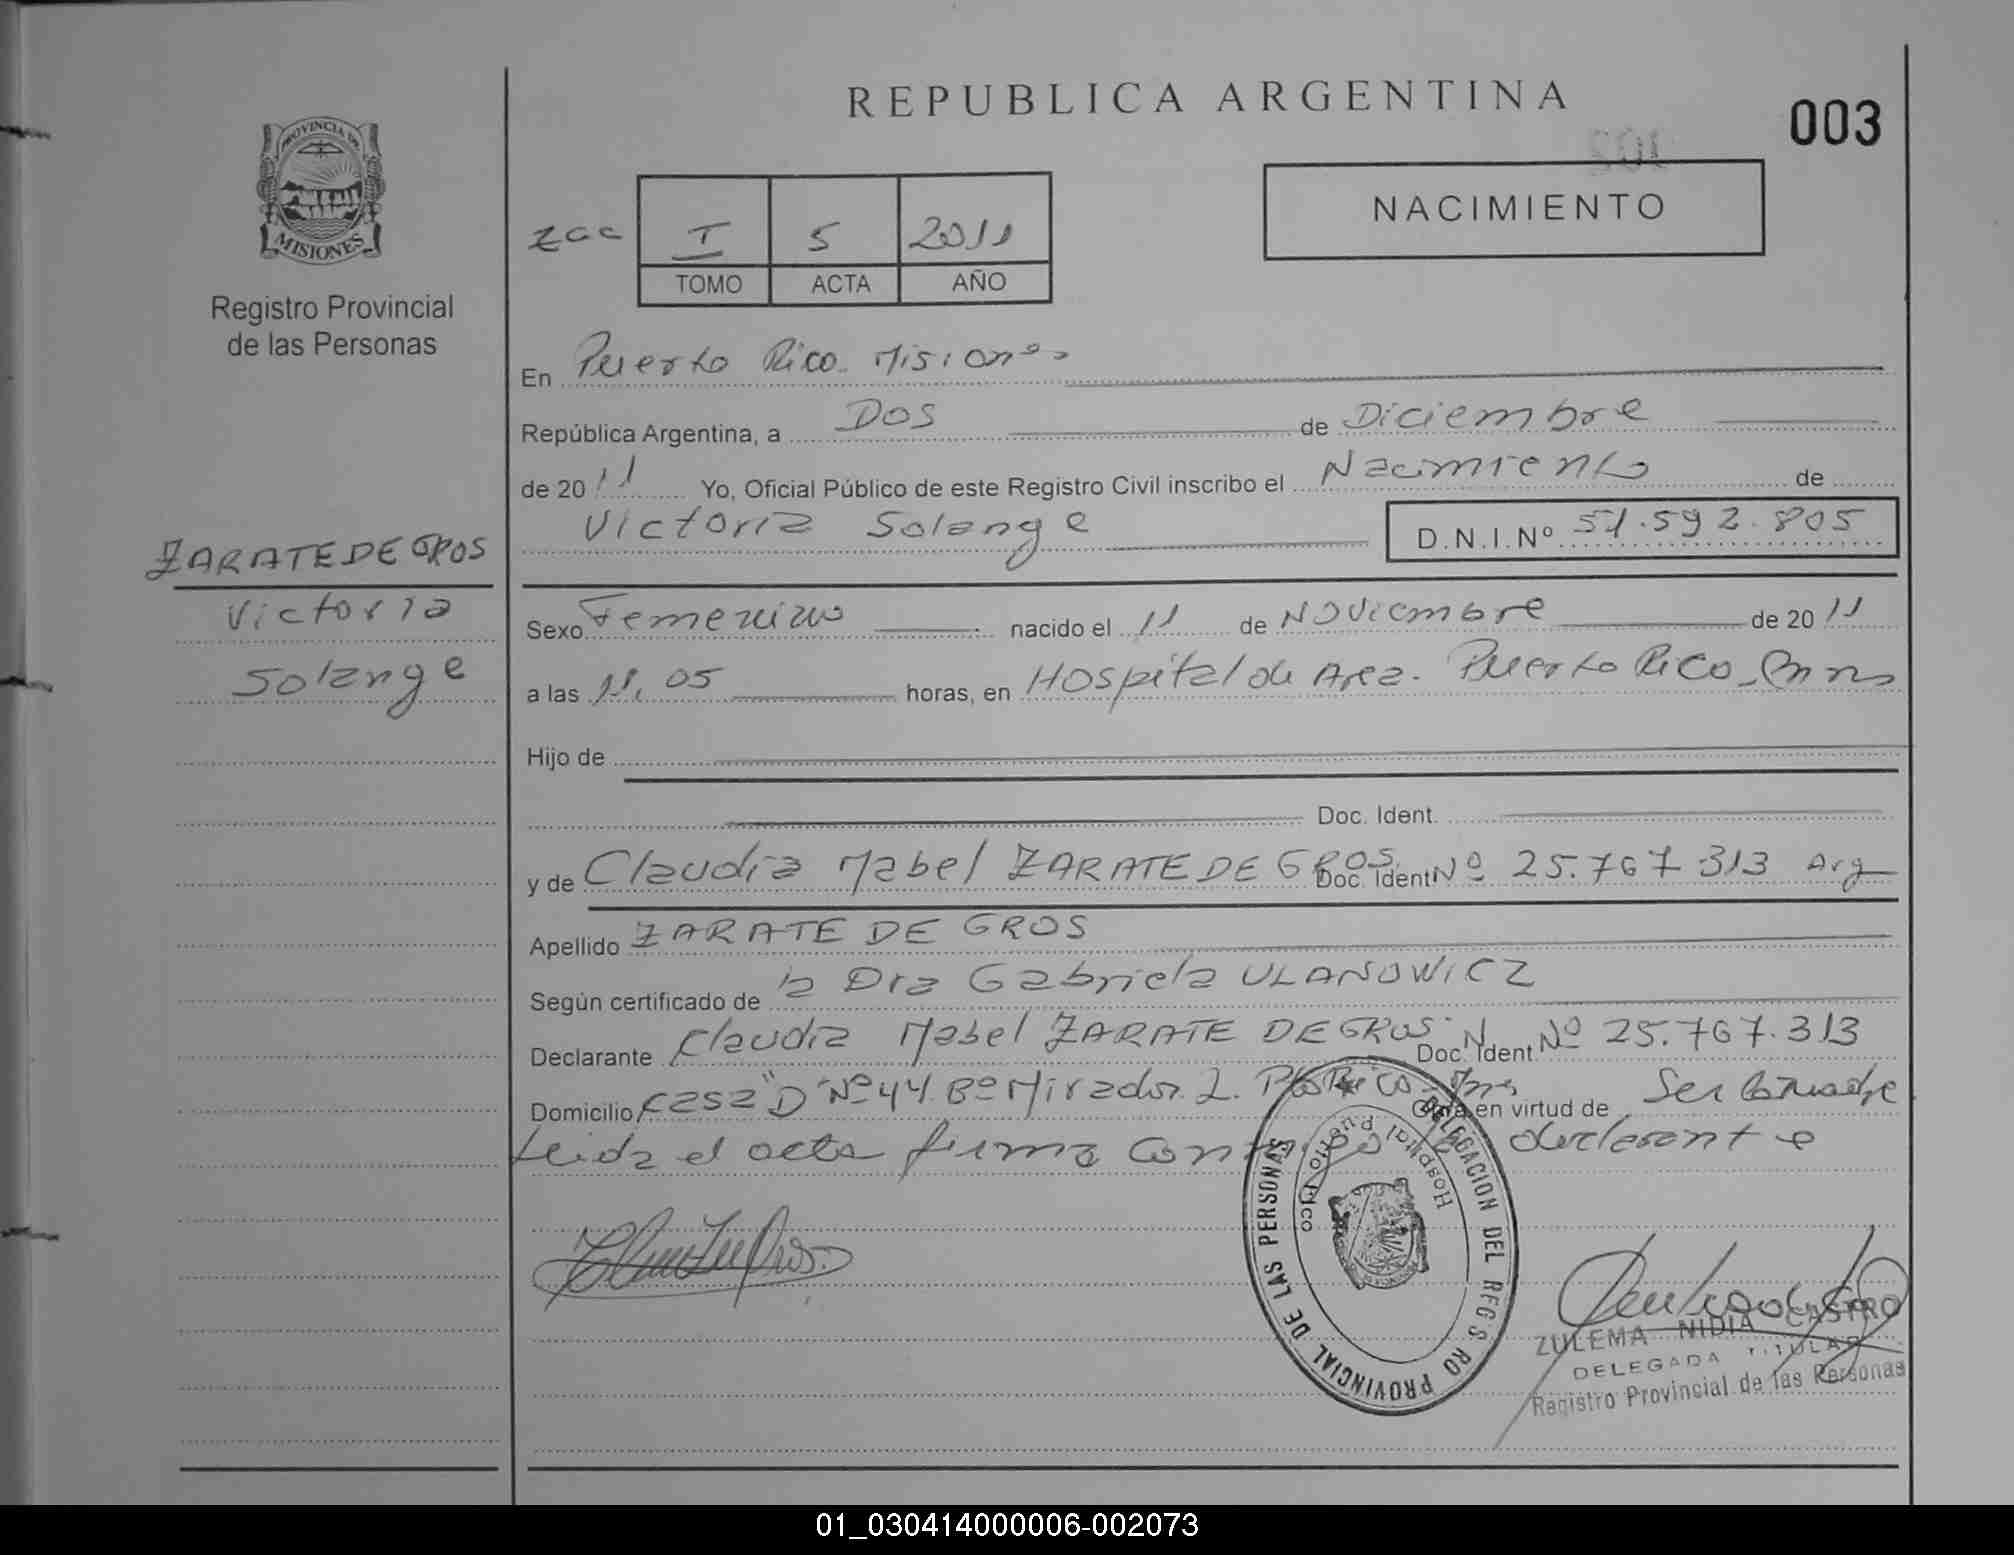 REPUBLICA ARGENTINA
003
PROVINCIA DE
MISIONES
Registro Provincial
de las Personas
NACIMIENTO
zcc I 5 2011
TOMO ACTA AÑO
En Puerto Rico. Misiones
República Argentina, a Dos de Diciembre
de 2011 Yo, Oficial Público de este Registro Civil inscribo el Nacimiento de
Victoria Solange D.N.I.Nº 51.592.805
ZARATE DE GROS
Victoria
Solange
Sexo Femenino nacido el 11 de Noviembre de 2011
a las 11.05 horas, en Hospital de Area. Puerto Rico
Hijo de
Doc. Ident.
y de Claudia Mabel ZARATE DE GROS Doc. Ident Nº 25.767.313 Arg
Apellido ZARATE DE GROS
Según certificado de la Dra Gabriela ULANOWICZ
Declarante Claudia Mabel ZARATE DE GROS Doc. Ident Nº 25.767.313
Domicilio Casa "D" Nº 44 Bº Mirador 2. Pto Rico Mns Obra en virtud de Ser la madre
Leida el acta firma conmigo la declarante
DELEGACION DEL REGISTRO PROVINCIAL DE LAS PERSONAS
Hospital Puerto Rico
ZULEMA NIDIA CASTRO
DELEGADA TITULAR
Registro Provincial de las Personas
01_030414000006-002073